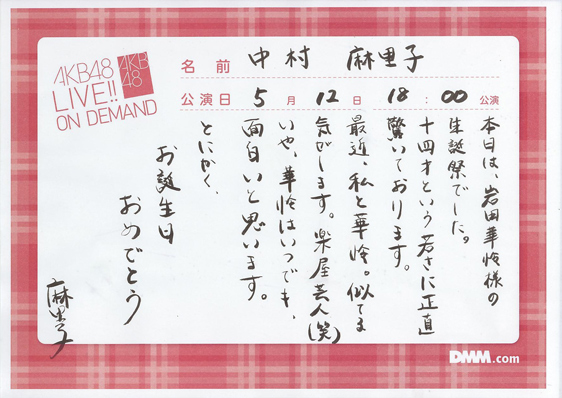 AKB48
LIVE!!
ON DEMAND
AKB
48
名前 中村 麻里子
公演日 5月12日 18:00公演
本日は、岩田華怜様の
生誕祭でした。
十四才という若さに正直
驚いております。
最近、私と華怜。似てる
気がします。楽屋芸人(笑)
いや、華怜はいつでも、
面白いと思います。
とにかく、
お誕生日
おめでとう
麻里子
DMM.com